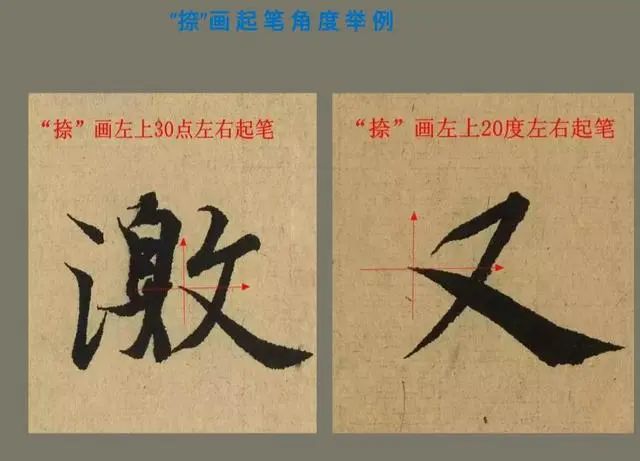 “捺”画起笔角度举例
“捺”画左上30点左右起笔
“捺”画左上20度左右起笔
激
又